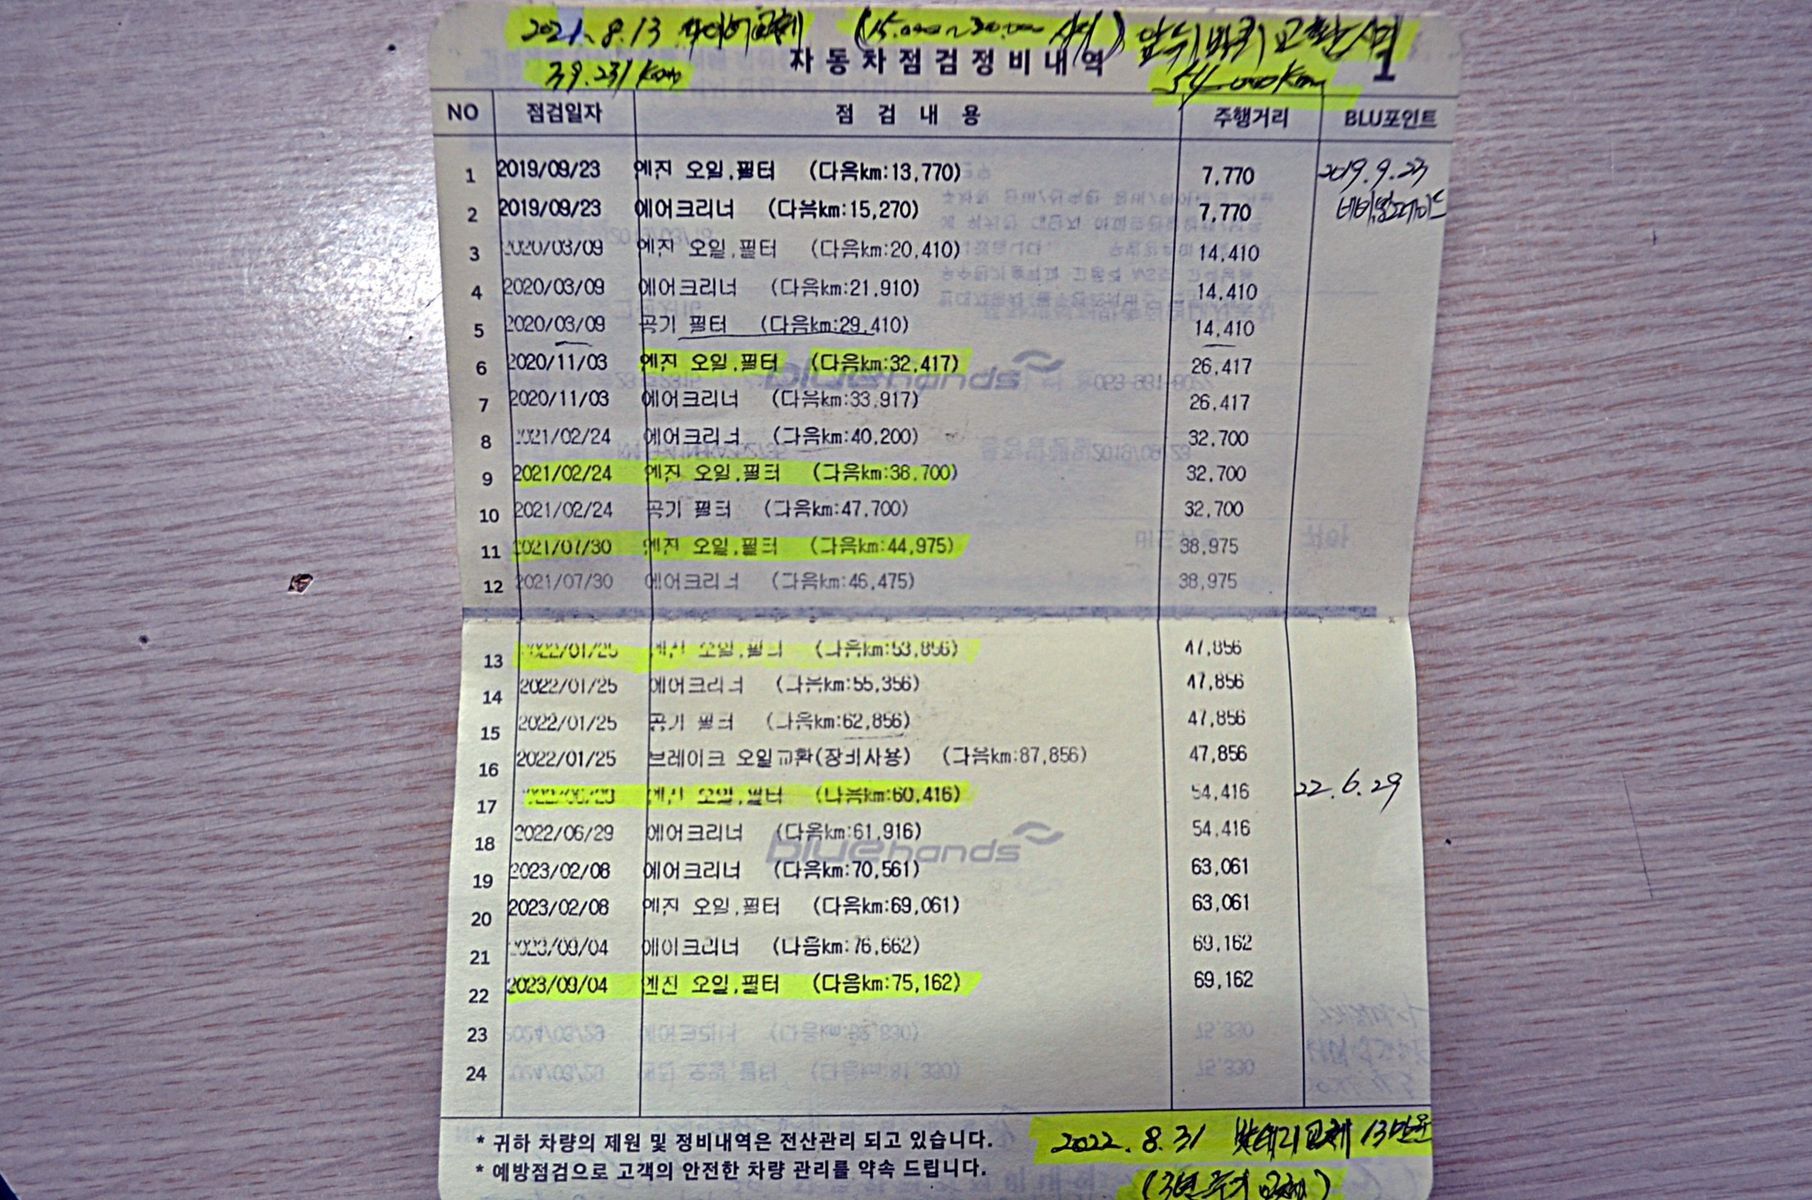 2021. 8. 13 타이어교체 (15.000~20.000 사이) 앞뒤바퀴 교환시기
39.231 Km 자동차점검정비내역 54.000Km 1
NO 점검일자 점 검 내 용 주행거리 BLU포인트
1 2019/09/23 엔진 오일,필터 (다음km:13,770) 7,770 2019.9.23
2 2019/09/23 에어크리너 (다음km:15,270) 7,770
3 2020/03/09 엔진 오일,필터 (다음km:20,410) 14,410
4 2020/03/09 에어크리너 (다음km:21,910) 14,410
5 2020/03/09 공기 필터 (다음km:29,410) 14,410
6 2020/11/03 엔진 오일,필터 (다음km:32,417) 26,417
7 2020/11/03 에어크리너 (다음km:33,917) 26,417
8 2021/02/24 에어크리너 (다음km:40,200) 32,700
9 2021/02/24 엔진 오일,필터 (다음km:38,700) 32,700
10 2021/02/24 공기 필터 (다음km:47,700) 32,700
11 2021/07/30 엔진 오일,필터 (다음km:44,975) 38,975
12 2021/07/30 에어크리너 (다음km:46,475) 38,975
13 2022/01/25 엔진 오일,필터 (다음km:53,856) 47,856
14 2022/01/25 에어크리너 (다음km:55,356) 47,856
15 2022/01/25 공기 필터 (다음km:62,856) 47,856
16 2022/01/25 브레이크 오일교환(장비사용) (다음km:87,856) 47,856
17 2022/06/29 엔진 오일,필터 (다음km:60,416) 54,416 22.6.29
18 2022/06/29 에어크리너 (다음km:61,916) 54,416
19 2023/02/08 에어크리너 (다음km:70,561) 63,061
20 2023/02/08 엔진 오일,필터 (다음km:69,061) 63,061
21 2023/09/04 에어크리너 (다음km:76,662) 69,162
22 2023/09/04 엔진 오일,필터 (다음km:75,162) 69,162
23
24
bluehands
bluehands
* 귀하 차량의 제원 및 정비내역은 전산관리 되고 있습니다.
* 예방점검으로 고객의 안전한 차량 관리를 약속 드립니다.
2022. 8. 31 밧데리교체 13만원
(3년 주기 교체)